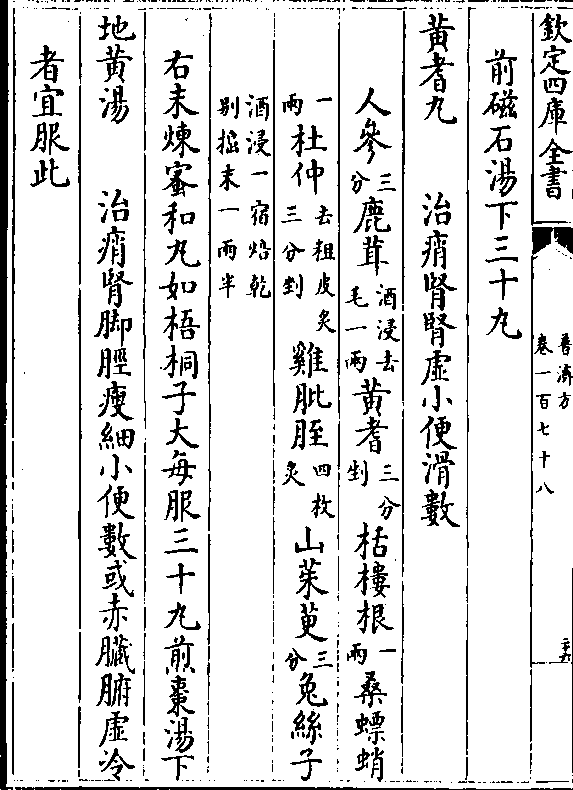 欽定四庫全書
普濟方
卷一百七十八
前磁石湯下三十丸
黃耆丸 治痟腎腎虛小便滑數
人參三分鹿茸酒浸去毛一兩黃耆三分剉栝樓根一兩桑螵蛸
一兩杜仲去粗皮炙三分剉雞肶胵四枚炙山茱萸三分兔絲子
酒浸一宿焙乾別搗末一兩半
右末煉蜜和丸如梧桐子大每服三十丸煎棗湯下
地黃湯 治痟腎脚脛瘦細小便數或赤臟腑虛冷
者宜服此